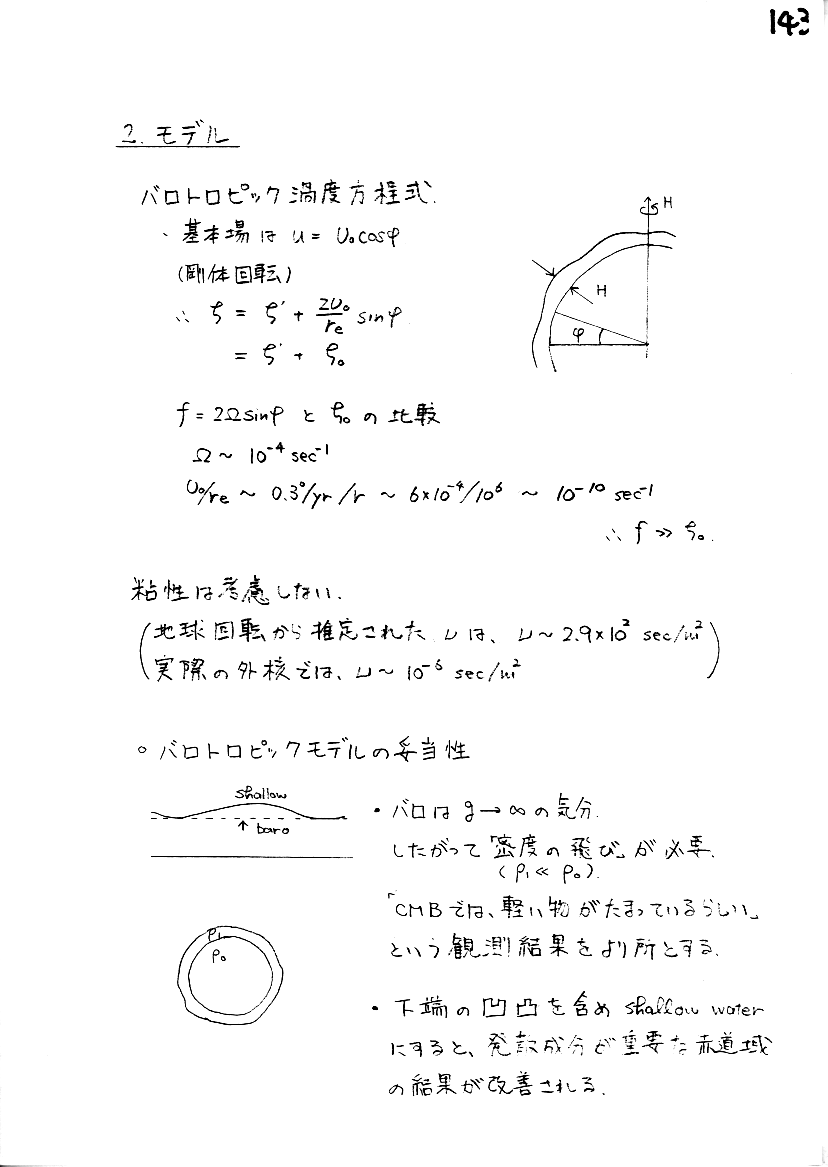 143
2. モデル
バロトロピック 渦度方程式.
・基本場は u = U₀cosφ
(剛体回転)
∴ ζ = ζ' + 2U₀/re sinφ
= ζ' + ζ₀
H
H
φ
f = 2Ωsinφ と ζ₀ の比較
Ω ~ 10⁻⁴ sec⁻¹
U₀/re ~ 0.3°/yr /r ~ 6×10⁻⁴/10⁶ ~ 10⁻¹⁰ sec⁻¹
∴ f ≫ ζ₀.
粘性は考慮しない.
(地球回転から推定された ν は、ν ~ 2.9×10² sec/m²
実際の外核では、ν ~ 10⁻⁶ sec/m²)
○ バロトロピックモデルの妥当性
shallow
↑ baro
・バロは g→∞ の気分.
したがって「密度の飛び」が必要.
(ρ₁ ≪ ρ₀).
「CMBでは、軽い物がたまっているらしい」
という観測結果をより所とする.
ρ₁
ρ₀
・下端の凹凸を含め shallow water
にすると、発散成分が重要な赤道域
の結果が改善される.